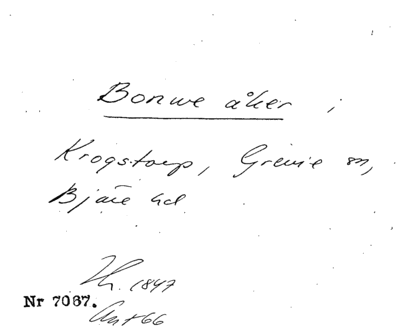 Bonwe åker i
Krogstorp, Grevie sn,
Bjäre hd
Th. 1847
Nr 7067.
Ant 66